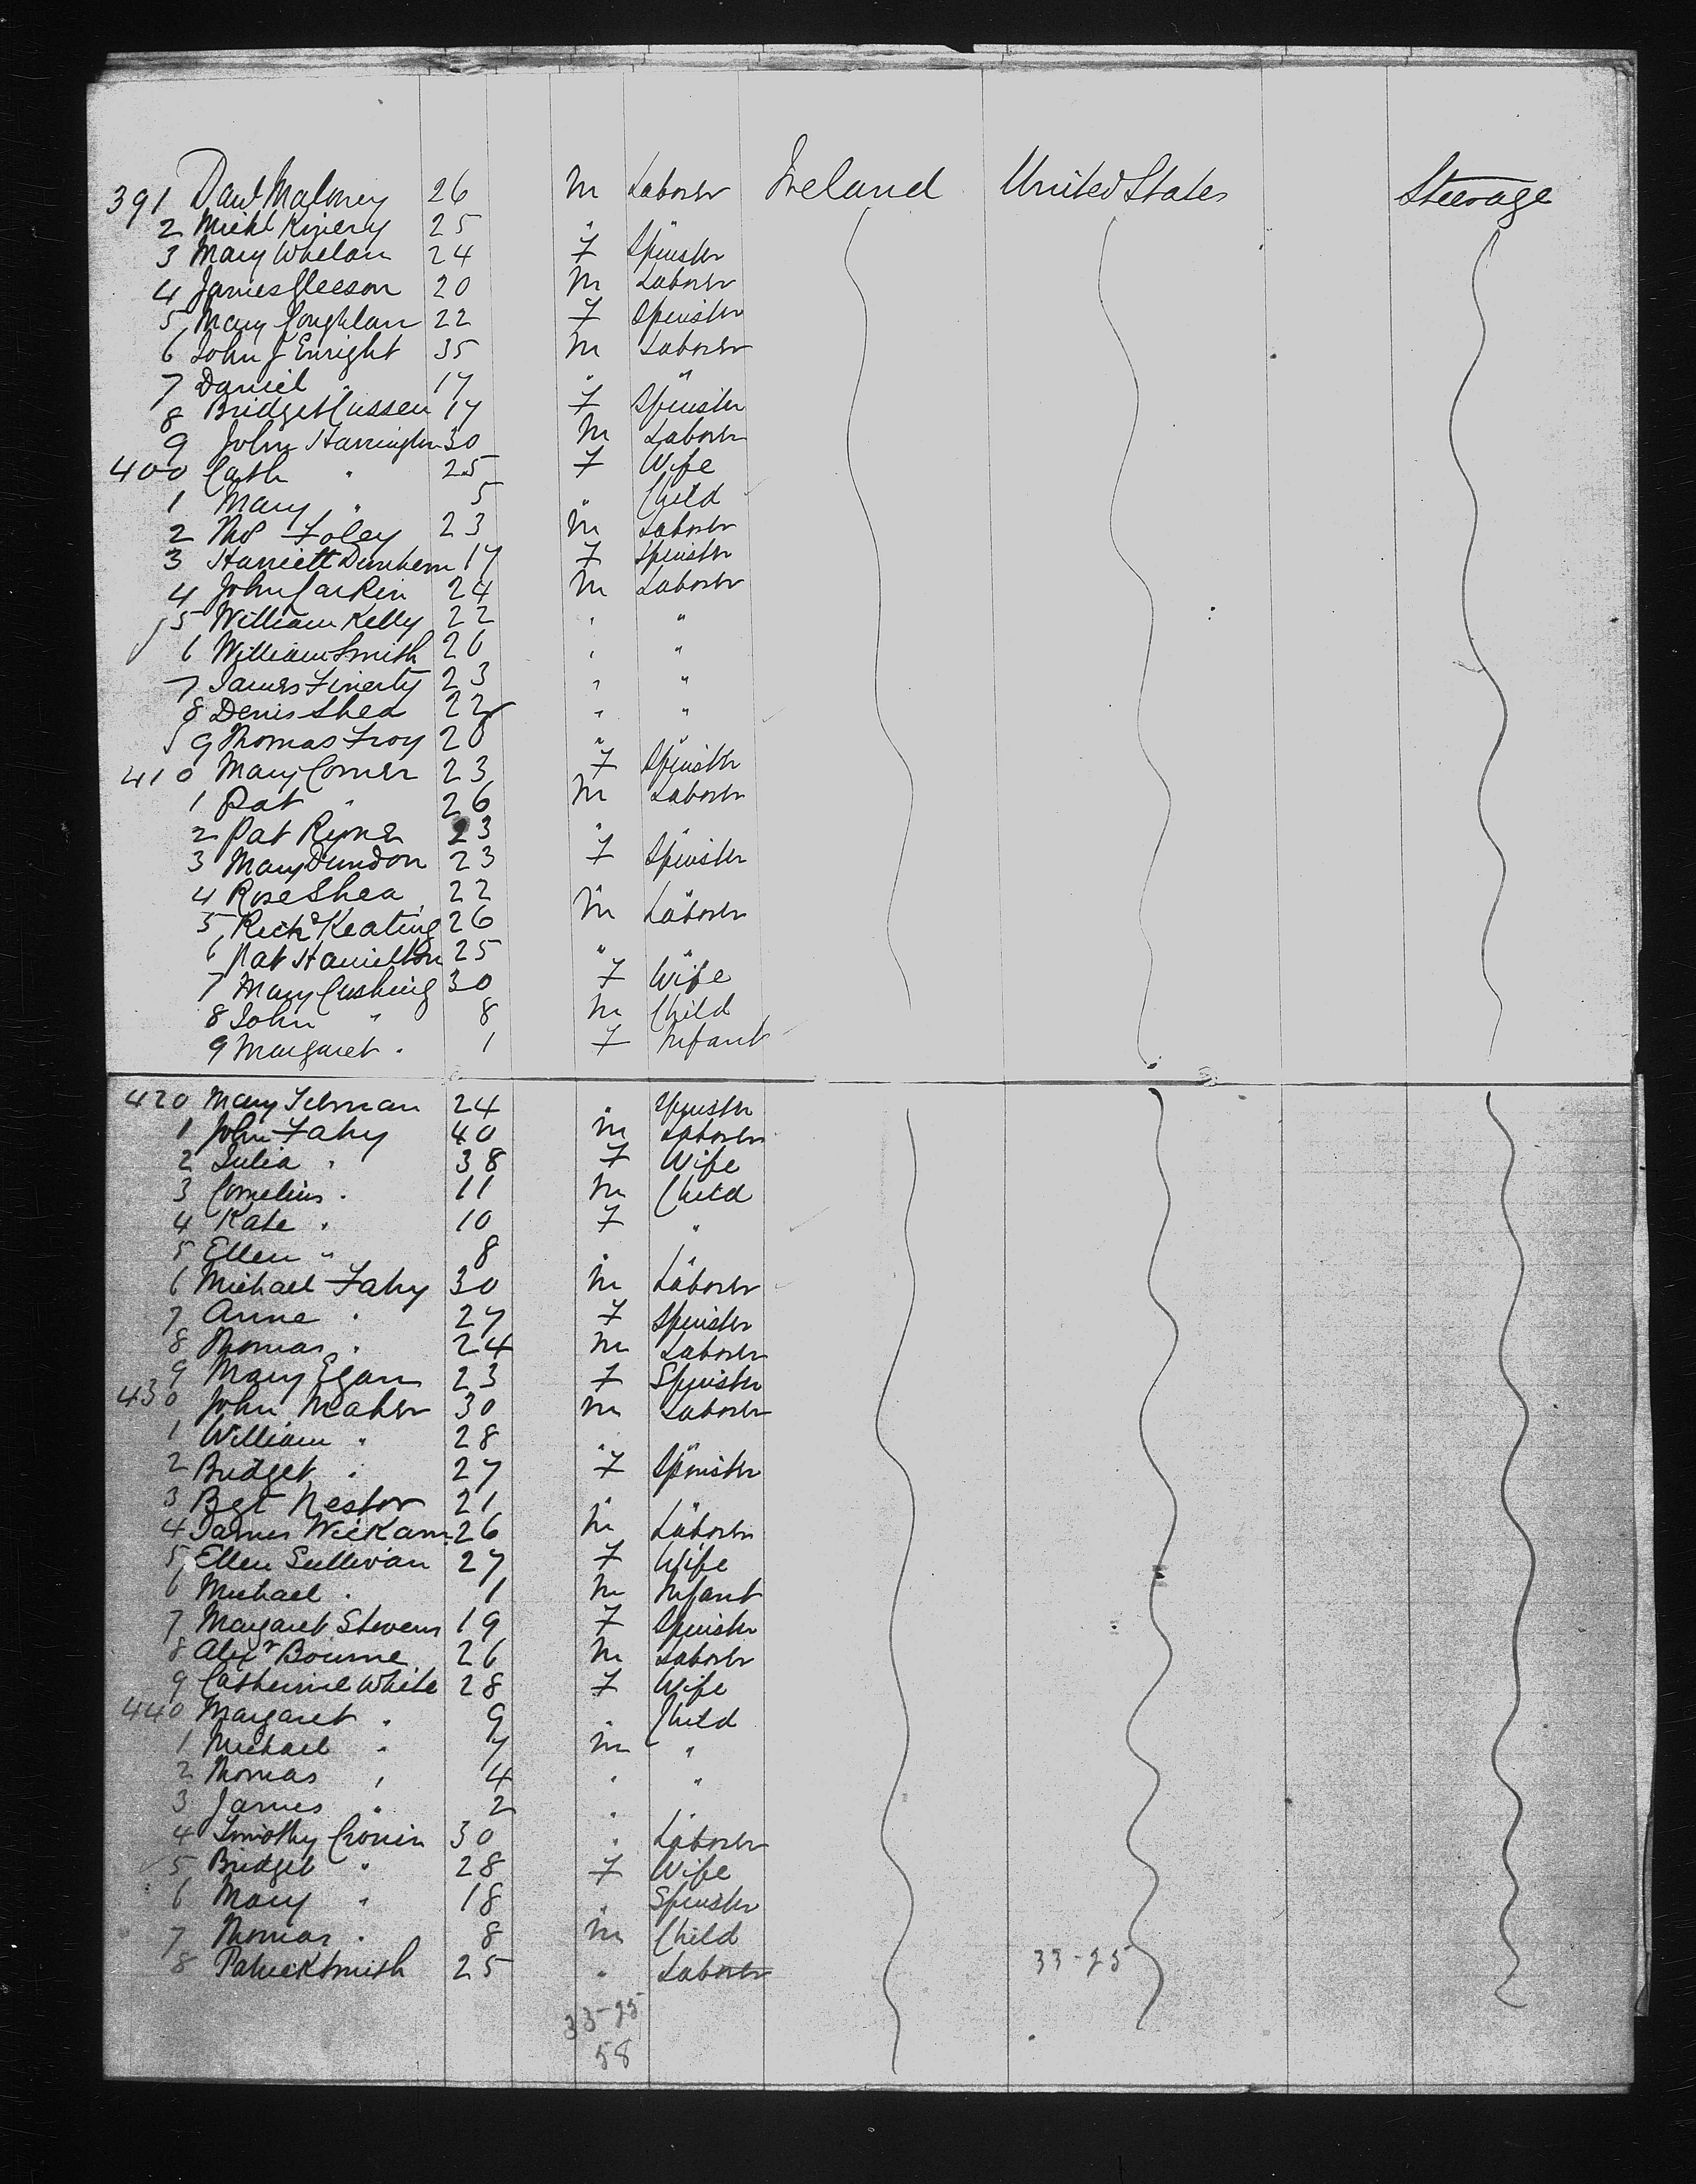 391 Davd Maloney 26 M Laborer Ireland United States Steerage
2 Michl Kiniery 25 " "
3 Mary Whelan 24 F Spinster
4 James Gleeson 20 M Laborer
5 Mary Coughlan 22 F Spinster
6 John J Enright 35 M Laborer
7 Daniel " 17 " "
8 Bridget Cussen 17 F Spinster
9 John Harrington 30 M Laborer
400 Cath " 25 F Wife
1 Mary " 5 " Child
2 Thos Foley 23 M Laborer
3 Harriett 17 F Spinster
4 John Larkin 24 M Laborer
5 William Kelly 22 " "
6 William Smith 26 " "
7 James Finerty 23 " "
8 Denis Shea 22 " "
9 Thomas Troy 20 " "
410 Mary Comer 23 F Spinster
1 Pat " 26 M Laborer
2 Pat Ryne 23 " "
3 Mary Dundon 23 F Spinster
4 Rose Shea 22 " "
5 Richd Keating 26 M Laborer
6 Pat Hamilton 25 " "
7 Mary Cushing 30 F Wife
8 John " 8 M Child
9 Margaret " 1 F Infant
420 Mary 24 " Spinster
1 John Fahy 40 M Laborer
2 Julia " 38 F Wife
3 Cornelius " 11 M Child
4 Kate " 10 F "
5 Ellen " 8 " "
6 Michael Fahy 30 M Laborer
7 Anne " 27 F Spinster
8 Thomas " 24 M Laborer
9 Mary Egan 23 F Spinster
430 John Maher 30 M Laborer
1 William " 28 " "
2 Bridget " 27 F Spinster
3 Bgt Nestor 21 " "
4 James Wickam 26 M Laborer
5 Ellen Sullivan 27 F Wife
6 Michael " 1 M Infant
7 Margaret Stevens 19 F Spinster
8 Alexr Bourne 26 M Laborer
9 Catherine White 28 F Wife
440 Margaret " 9 " Child
1 Michael " 7 M "
2 Thomas " 4 " "
3 James " 2 " "
4 Timothy Cronin 30 " Laborer
5 Bridget " 28 F Wife
6 Mary " 18 " Spinster
7 Thomas " 8 M Child
8 Patrick Smith 25 " Laborer
33-25
33-25
58